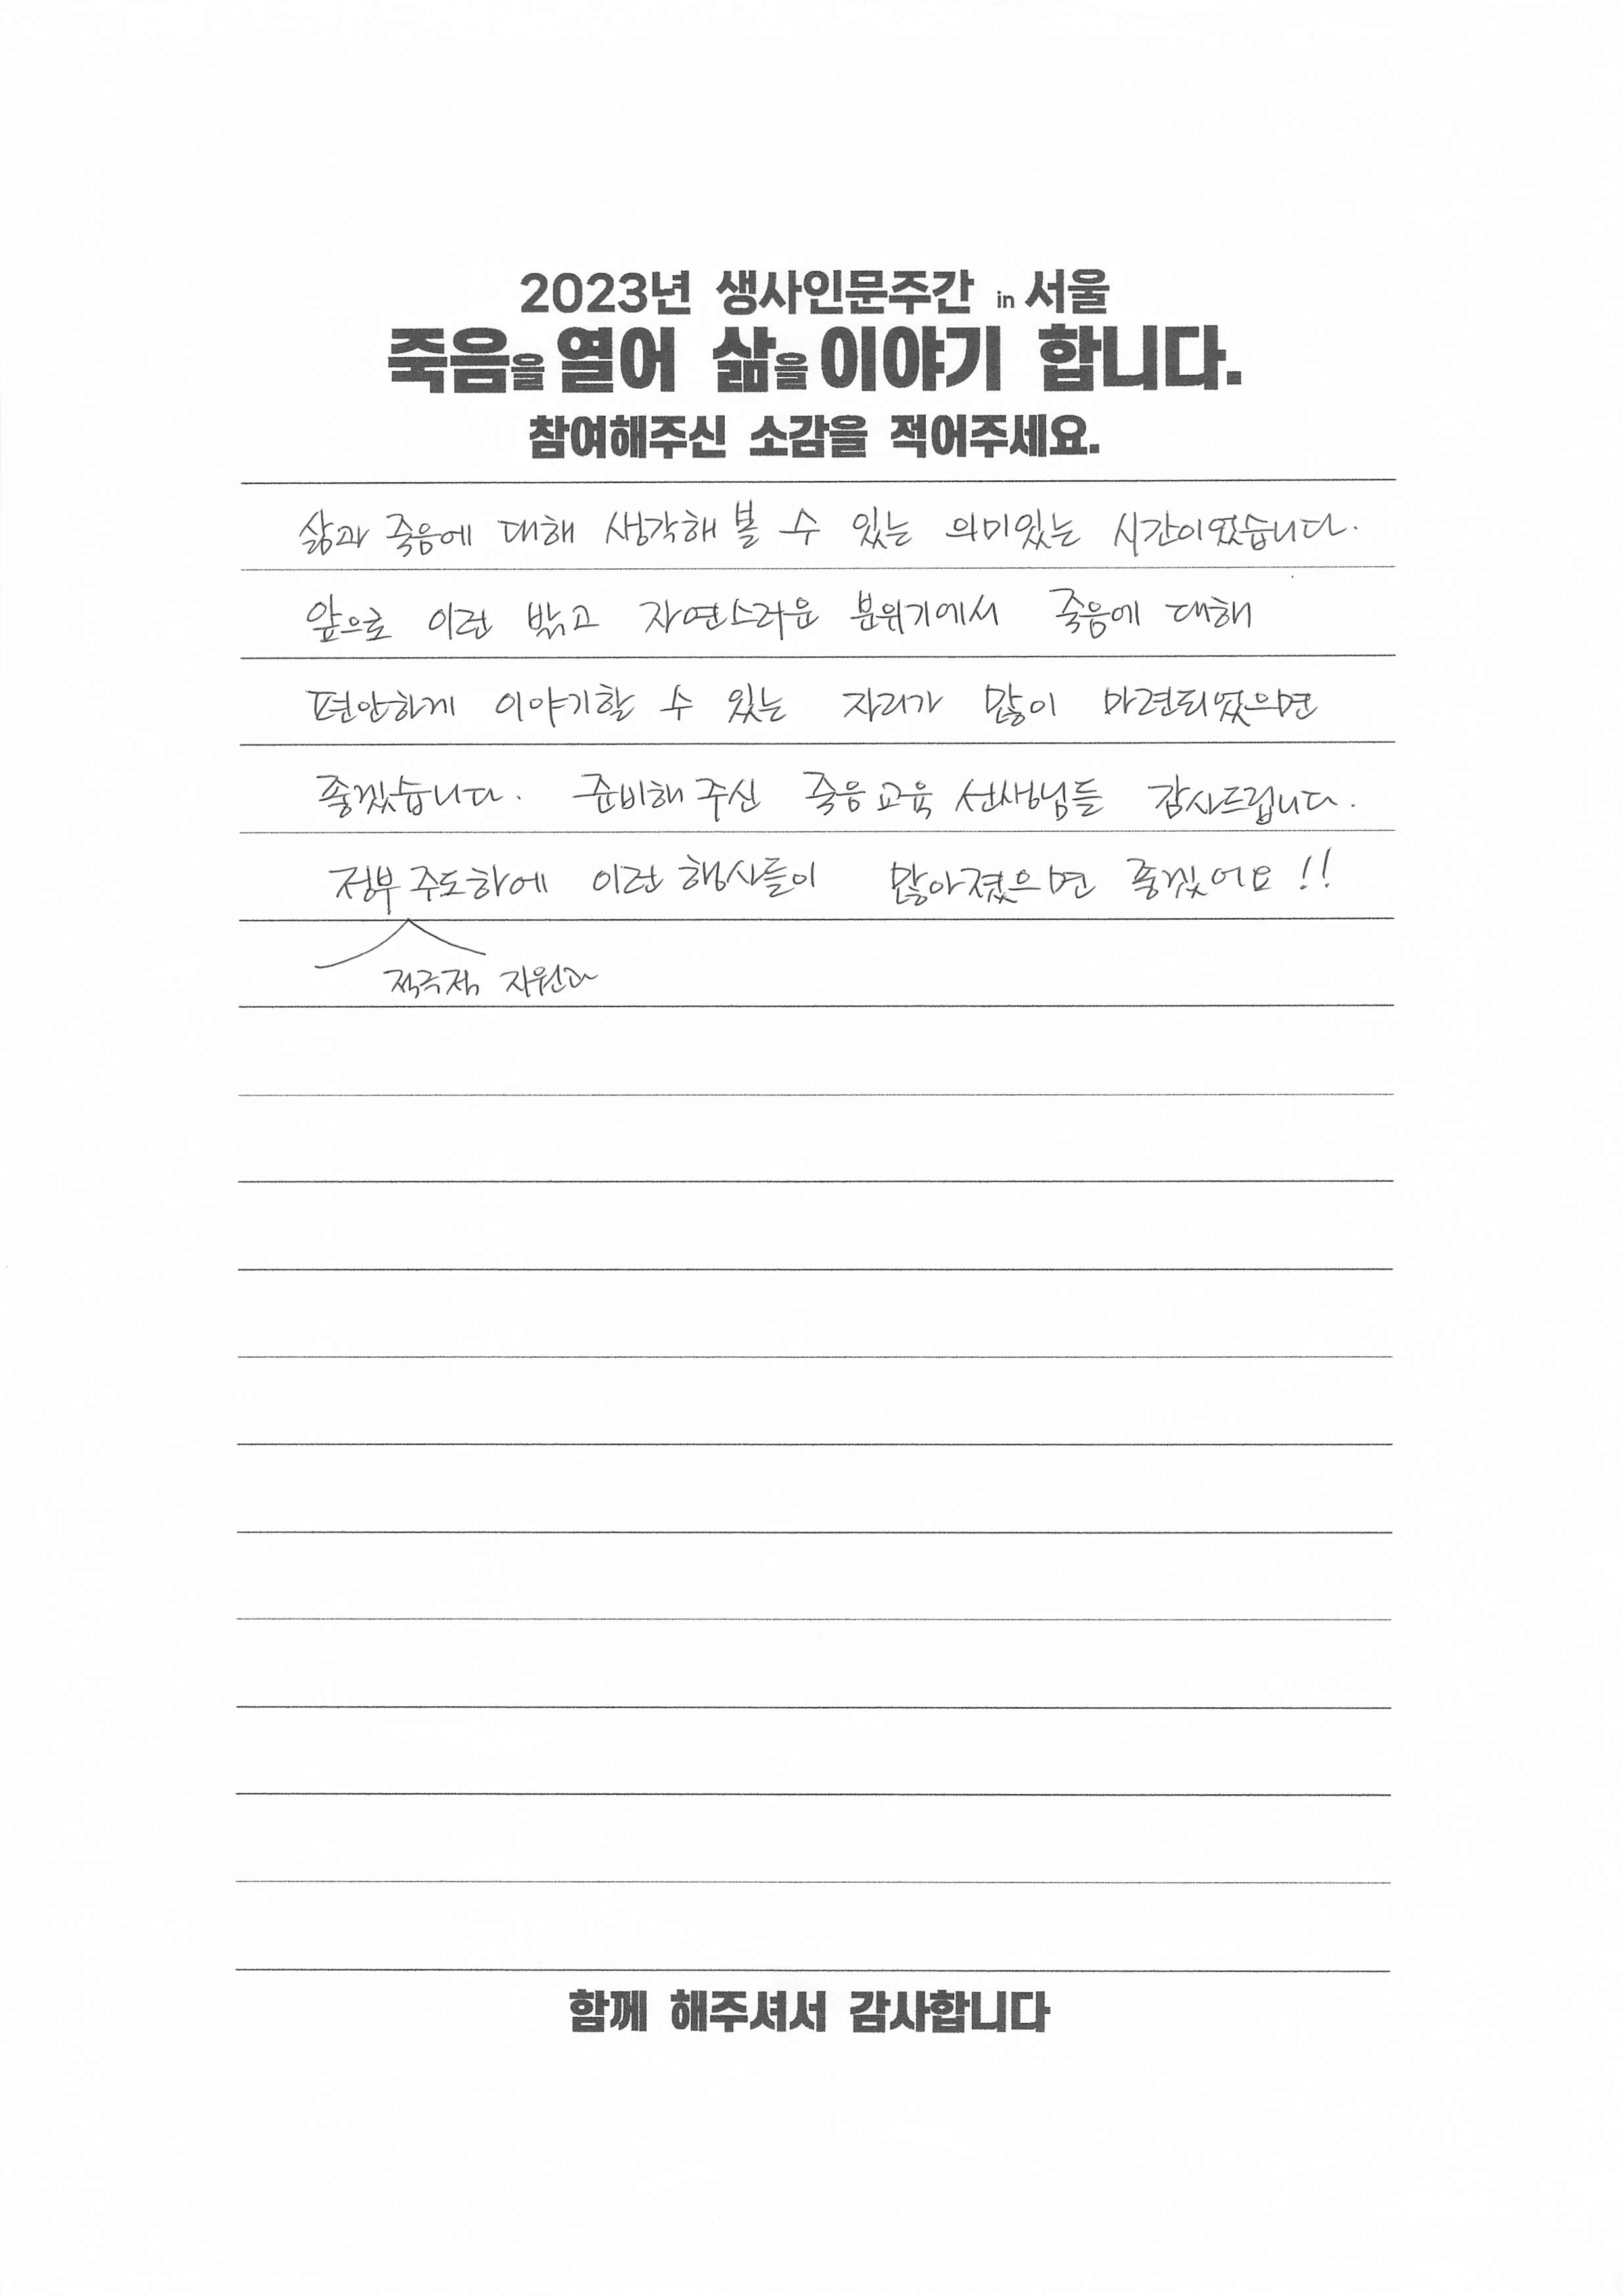 2023년 생사인문주간 in 서울
죽음을 열어 삶을 이야기 합니다.
참여해주신 소감을 적어주세요.
삶과 죽음에 대해 생각해 볼 수 있는 의미있는 시간이었습니다.
앞으로 이런 밝고 자연스러운 분위기에서 죽음에 대해
편안하게 이야기할 수 있는 자리가 많이 마련되었으면
좋겠습니다. 준비해 주신 죽음교육 선생님들 감사드립니다.
정부 주도하에 이런 행사들이 많아졌으면 좋겠어요!!
적극적 자원과
함께 해주셔서 감사합니다